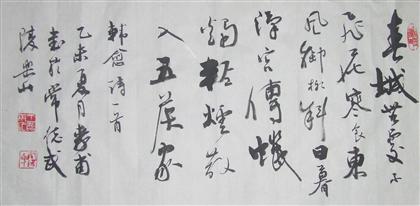 春城無處不
飛花寒食東
風御柳斜日暮
漢宮傳蠟
燭輕煙散
入五侯家
韓翁詩一首
乙未夏月孝甫
書於常德武
陵樂山